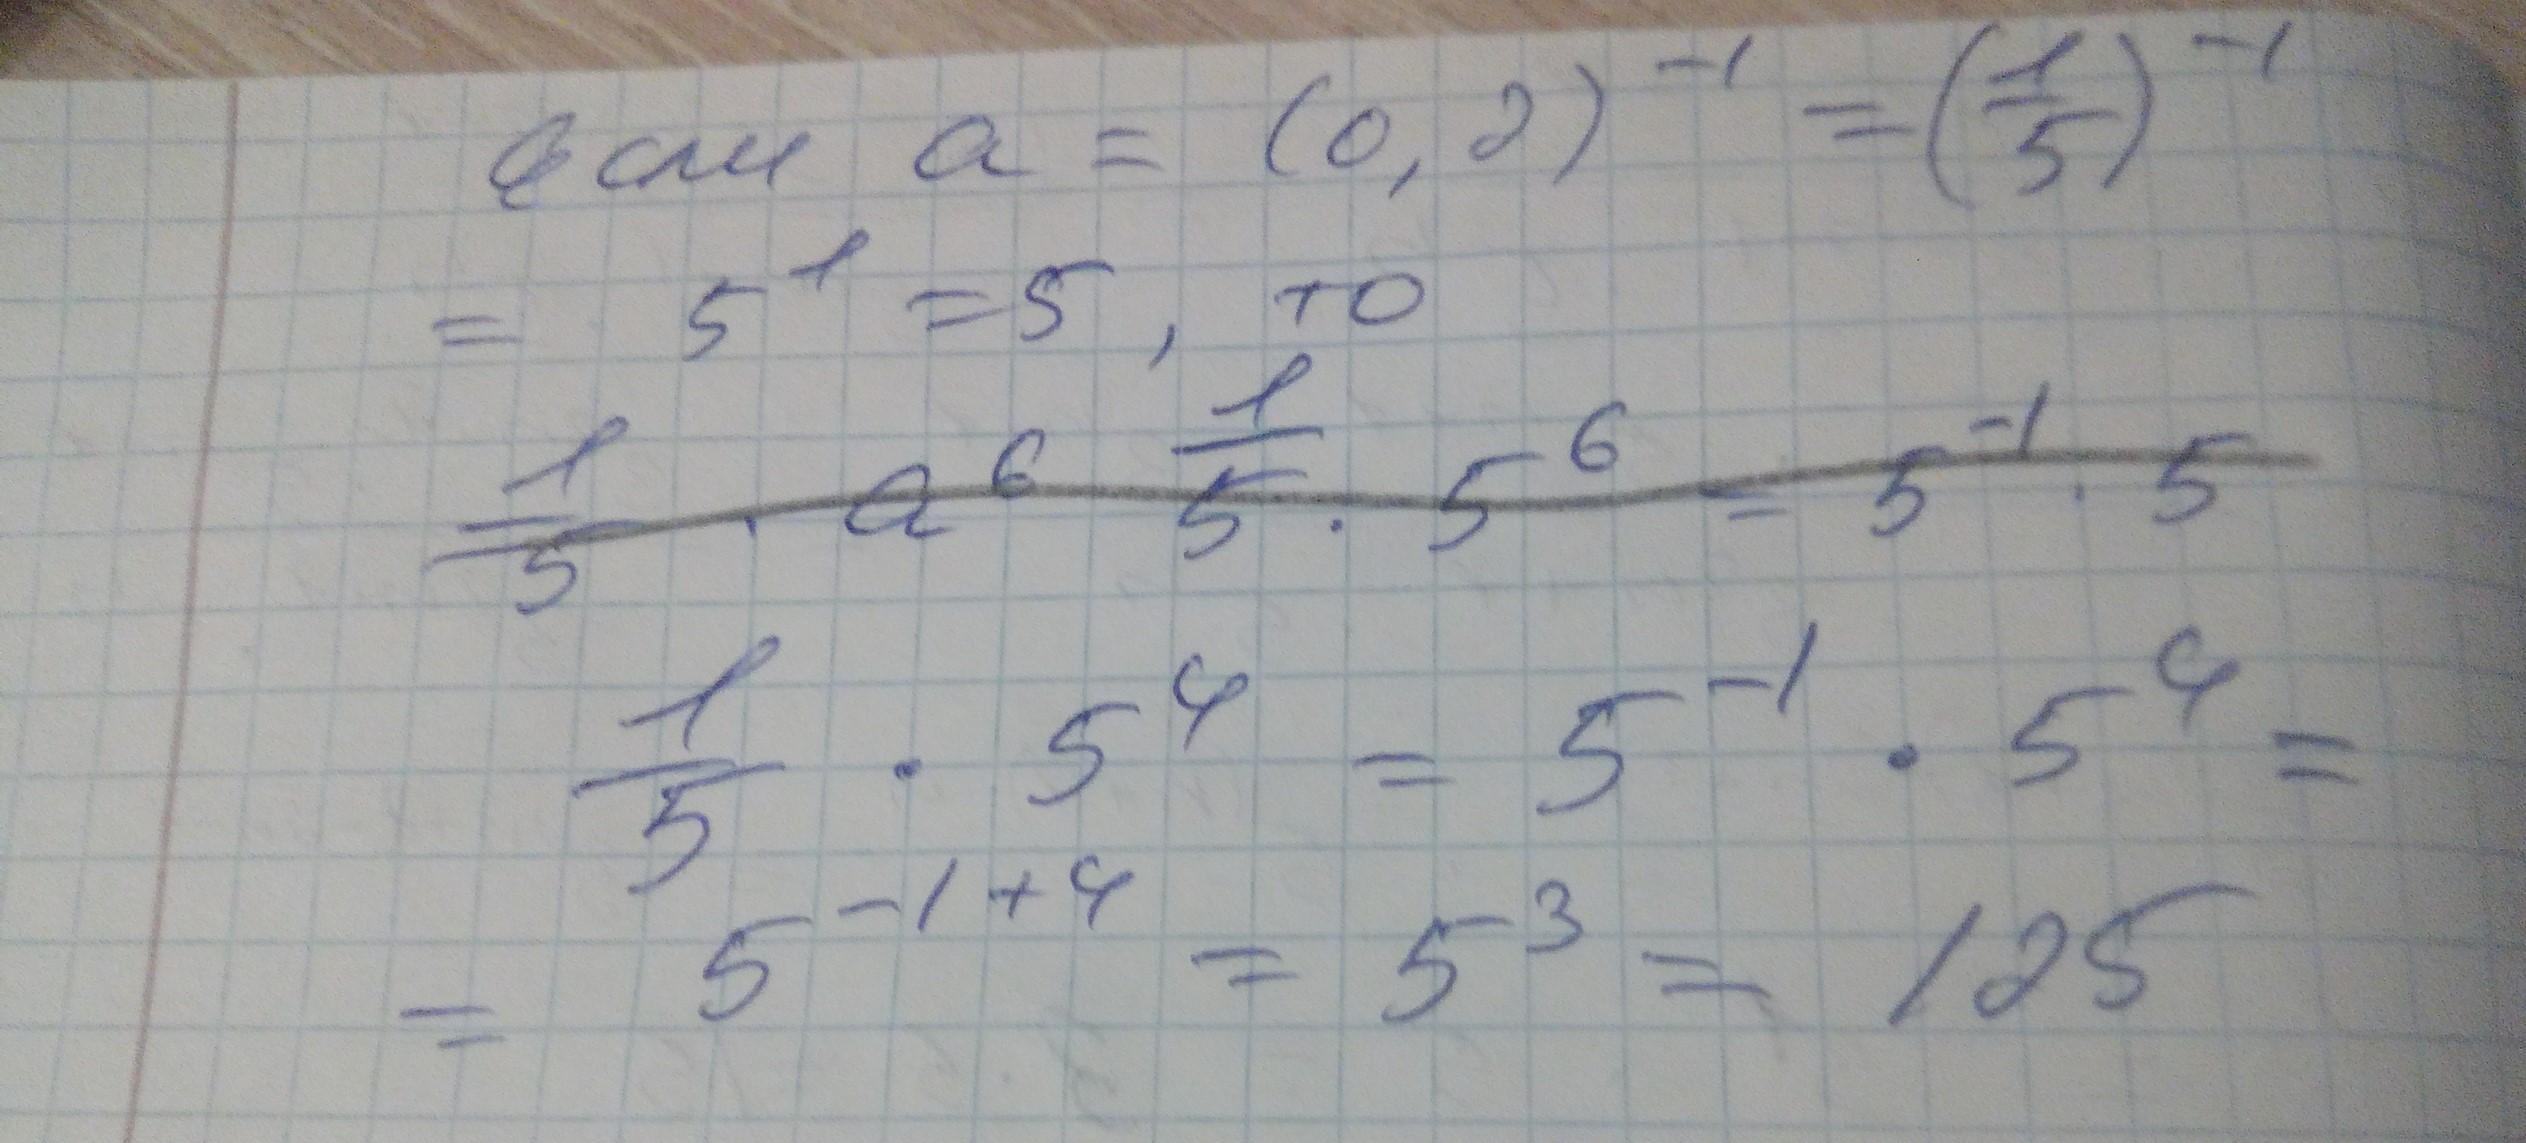 если a = (0,2)⁻¹ = (1/5)⁻¹
= 5¹ = 5, то
1/5 · a⁶ 1/5 · 5⁶ = 5⁻¹ · 5
1/5 · 5⁴ = 5⁻¹ · 5⁴ =
= 5⁻¹⁺⁴ = 5³ = 125